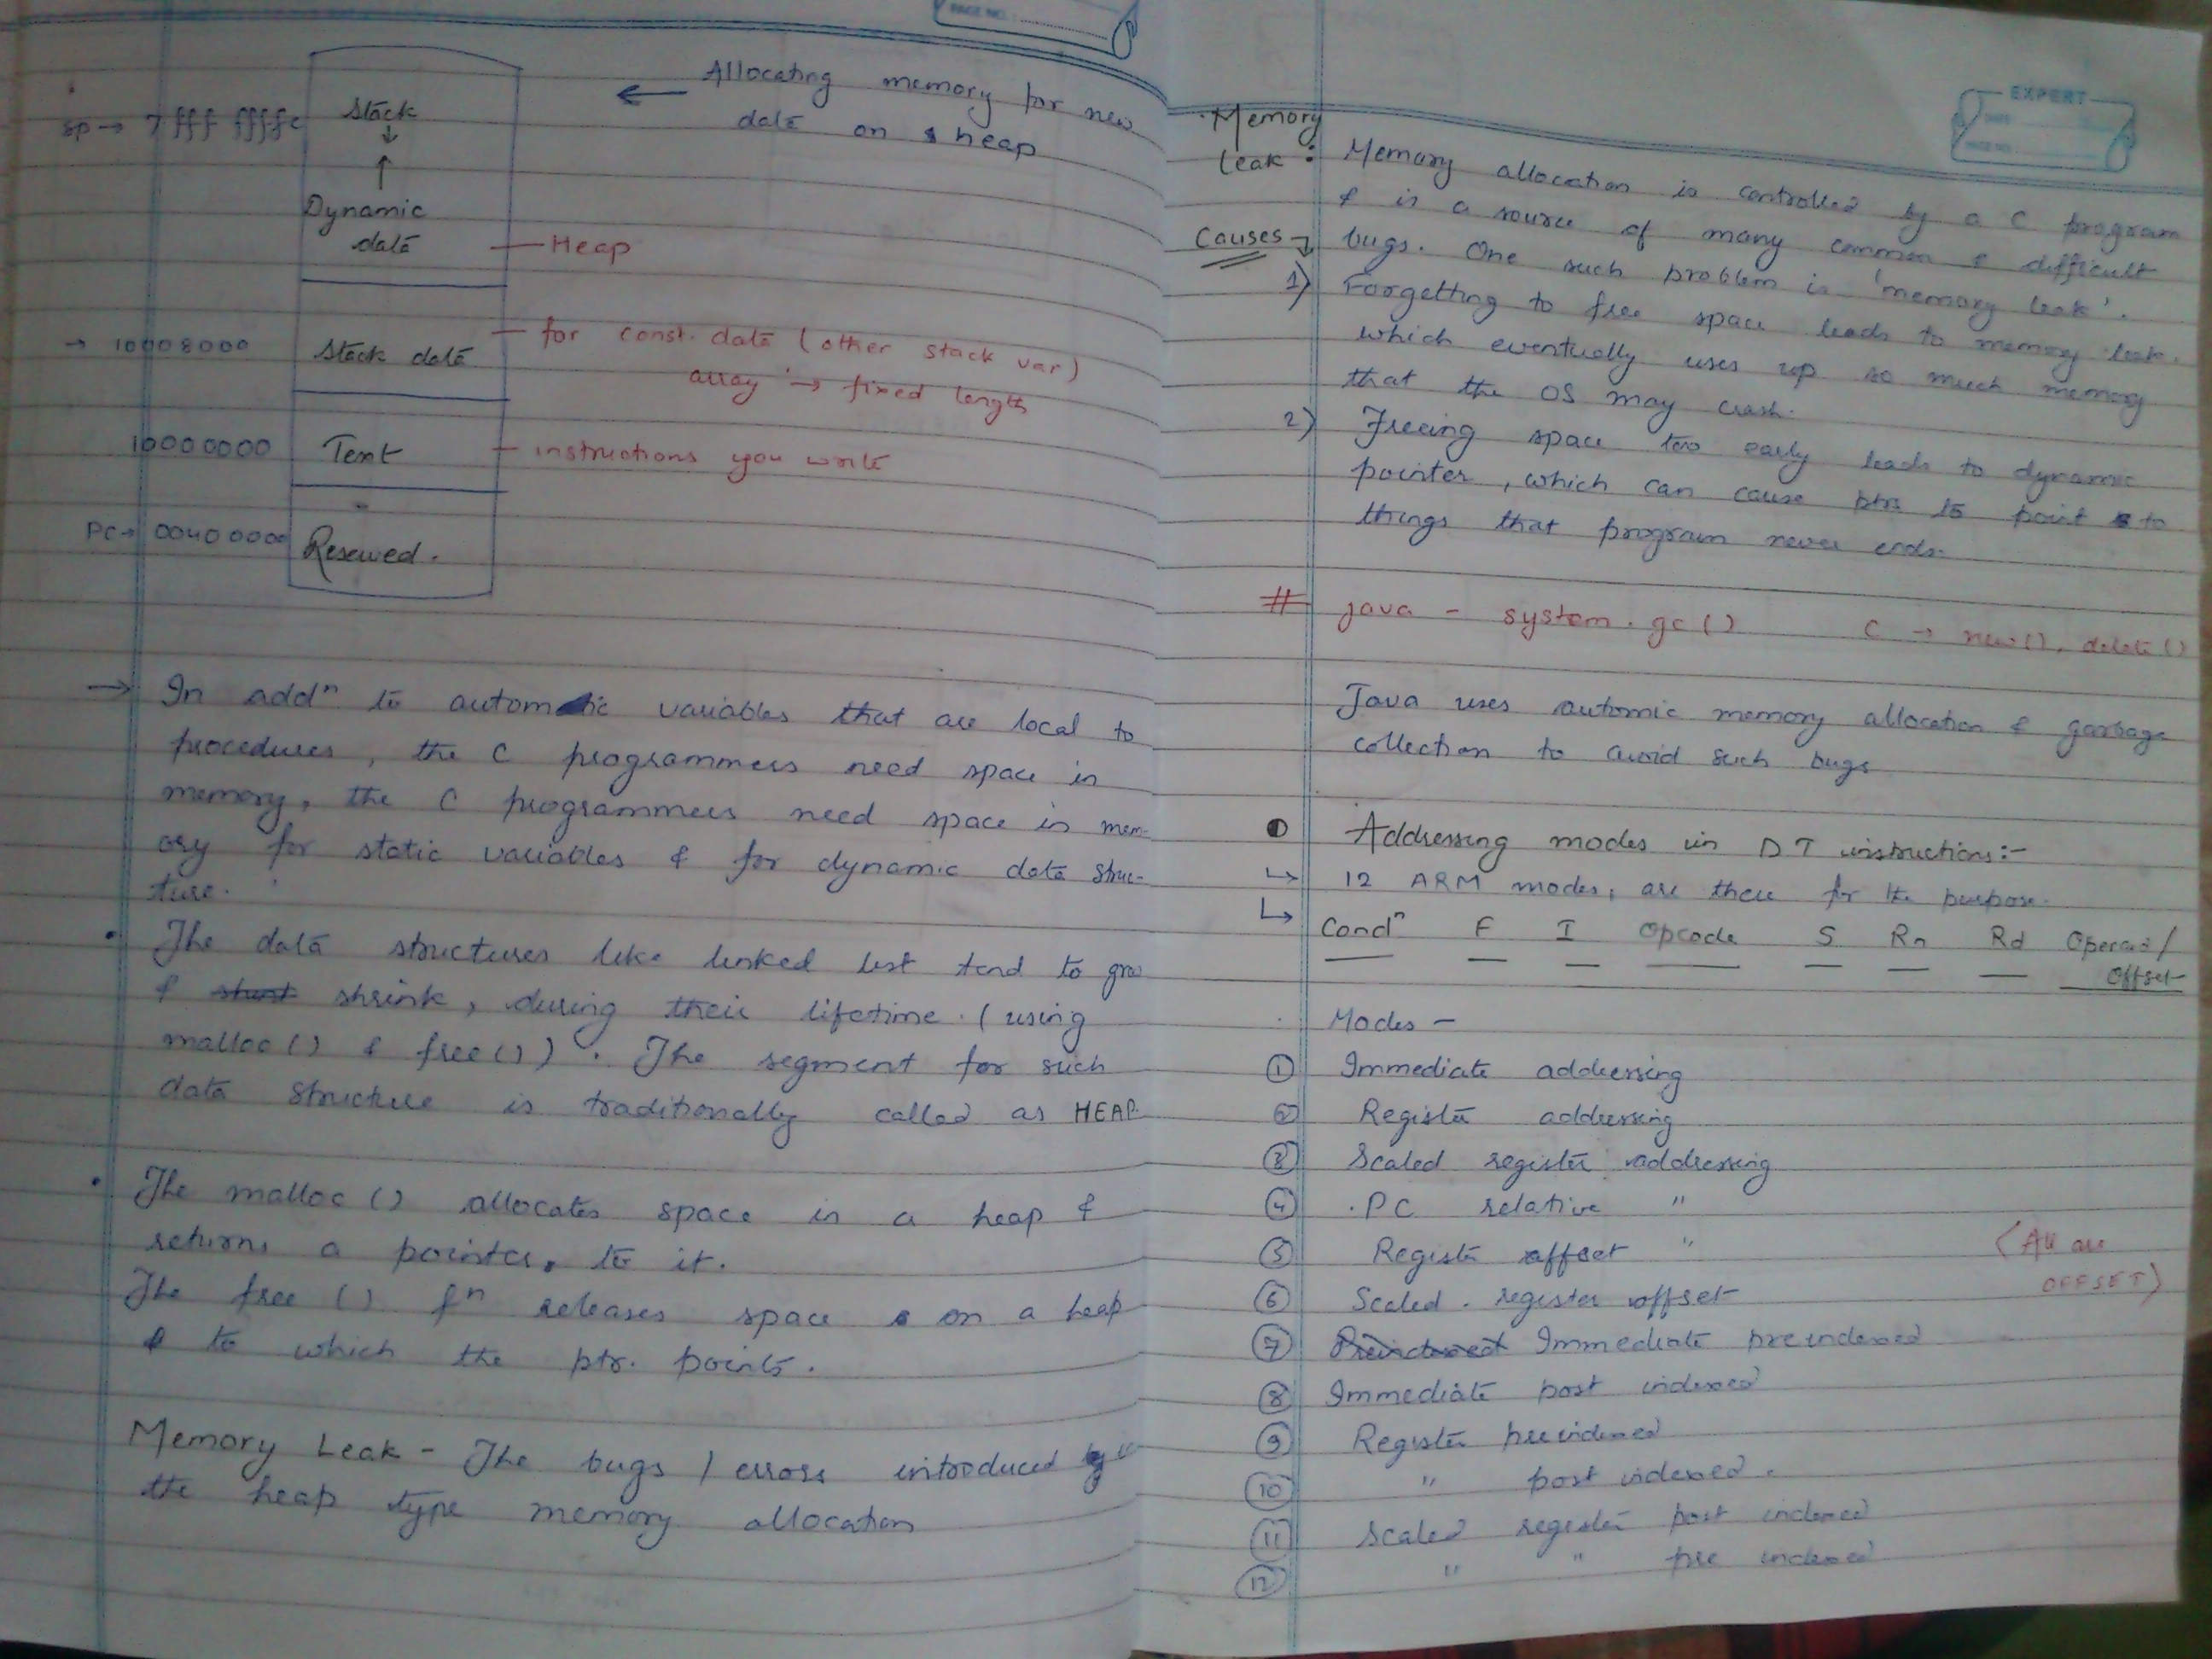 PAGE NO.:
← Allocating memory for new
data on heap
sp → 7fff fffc Stack
↓
↑
Dynamic
data — Heap
→ 10008000 Stack data — for const. data (other stack var)
array → fixed length
10000000 Text — instructions you write
PC → 00400000 Reserved.
→ In addⁿ to automatic variables that are local to
procedures, the C programmers need space in
memory, the C programmers need space in mem-
ory for static variables & for dynamic data struc-
ture.
• The data structures like linked list tend to grow
& shrink, during their lifetime. (using
malloc() & free()). The segment for such
data structure is traditionally called as HEAP
• The malloc () allocates space in a heap &
returns a pointer, to it.
The free () fⁿ releases space on a heap
to which the ptr. points.
Memory Leak - The bugs / errors introduced
the heap type memory allocation
EXPERT
DATE
PAGE NO.:
Memory
leak : Memory allocation is controlled by a C program
& is a source of many common & difficult
Causes → bugs. One such problem is 'memory leak'.
1) Forgetting to free space leads to memory leak.
which eventually uses up so much memory
that the OS may crash.
2) Freeing space too early leads to dynamic
pointer, which can cause ptrs to point to
things that program never ends.
# java - system.gc() C → new(), delete()
Java uses automic memory allocation & garbage
collection to avoid such bugs
Addressing modes in DT instructions:-
↳ 12 ARM modes, are there for the purpose.
↳ Condⁿ F I Opcode S Rn Rd Operand/
Offset
Modes -
① Immediate addressing
② Register addressing
③ Scaled register addressing
④ PC relative "
⑤ Register offset "
(All are
OFFSET)
⑥ Scaled register offset
⑦ Immediate preindexed
⑧ Immediate post indexed
⑨ Register preindexed
⑩ " post indexed.
⑪ Scaled register post indexed
⑫ " " pre indexed